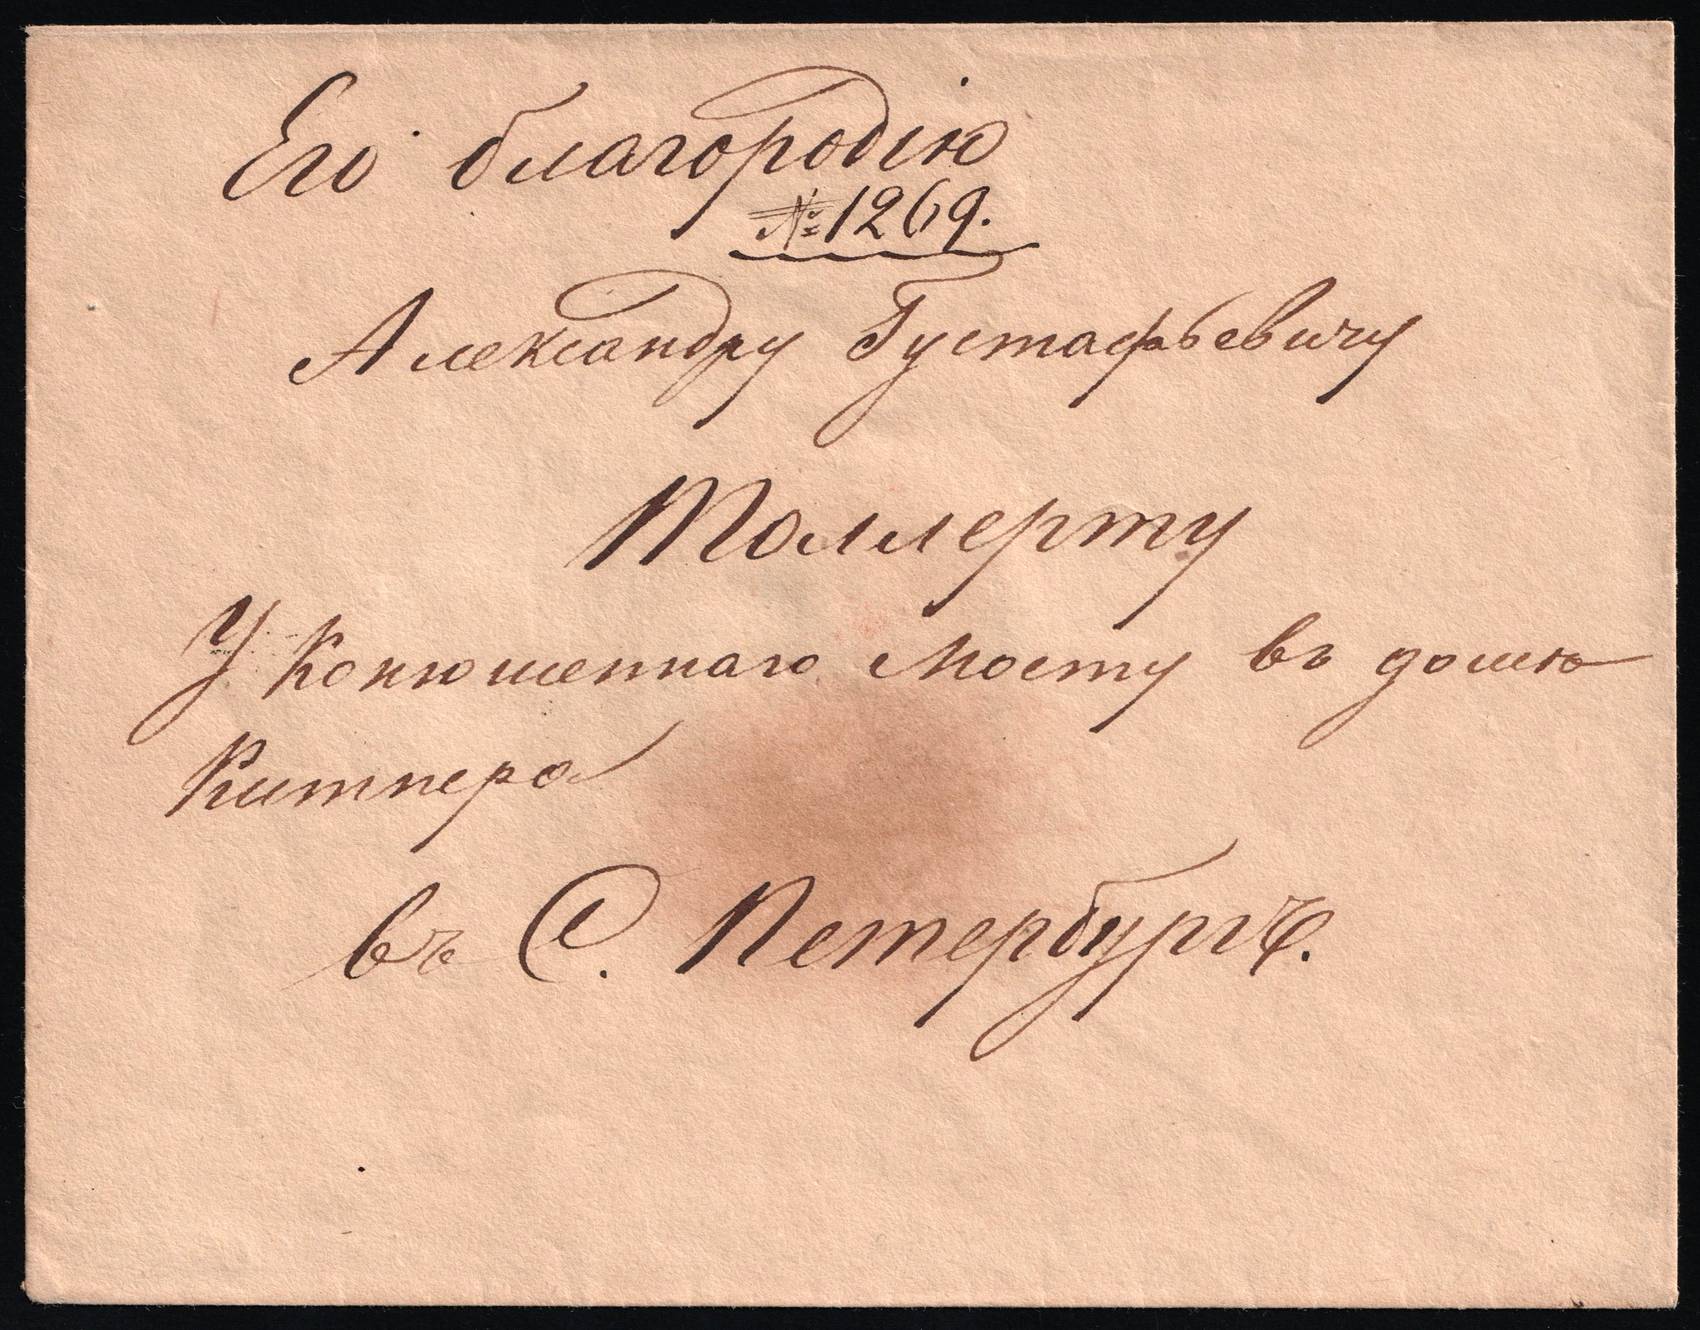 Его благородію
№ 1269.
Александру Густафьевичу
Толлерту
У Конюшеннаго мосту въ доме
Китнера
въ С. Петербургѣ.